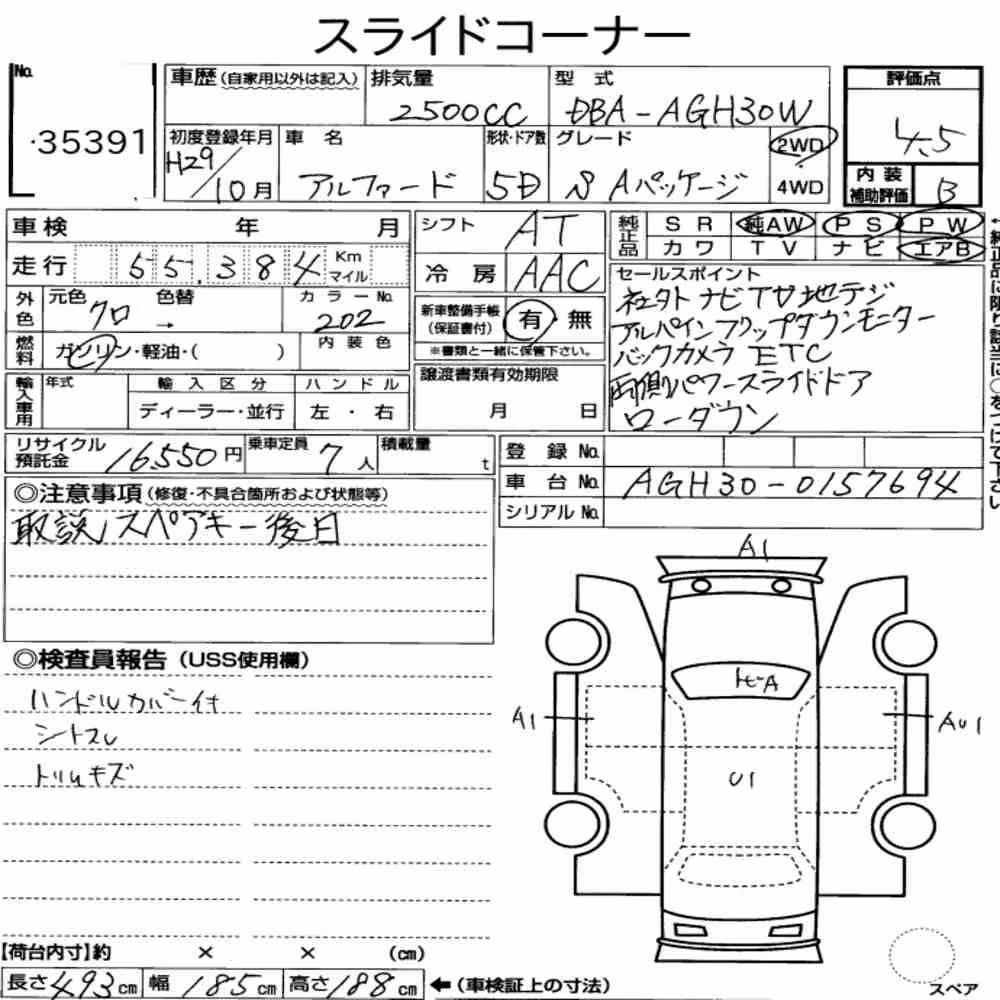 スライドコーナー
No. 35391
車歴 (自家用以外は記入)
排気量 2500CC
型式 DBA-AGH30W
評価点 4.5
初度登録年月 H29/10月
車名 アルファード
形状・ドア数 5D
グレード S Aパッケージ
2WD
4WD
内装補助評価 B
車検 年 月
走行 55,384 Km マイル
外色 元色 クロ 色替 → カラーNo. 202
燃料 ガソリン・軽油・( ) 内装色
輸入車用 年式 輸入区分 ハンドル
ディーラー・並行 左・右
シフト AT
冷房 AAC
新車整備手帳(保証書付) 有 無
※書類と一緒に保管下さい。
譲渡書類有効期限
月 日
純正品 SR 純AW PS PW
カワ TV ナビ エアB
←純正品に限り該当に○をつけて下さい
セールスポイント
社外ナビTV地デジ
アルパインフリップダウンモニター
バックカメラ ETC
両側パワースライドドア
ローダウン
リサイクル預託金 16,550円
乗車定員 7人
積載量 t
登録No.
車台No. AGH30-0157694
シリアルNo.
◎注意事項(修復・不具合箇所および状態等)
取説、スペアキー後日
◎検査員報告(USS使用欄)
ハンドルカバー付
シートスレ
トリムキズ
A1
ヒーA
A1
AU1
U1
【荷台内寸】約 × × (cm)
長さ493cm 幅185cm 高さ188cm ←(車検証上の寸法)
スペア